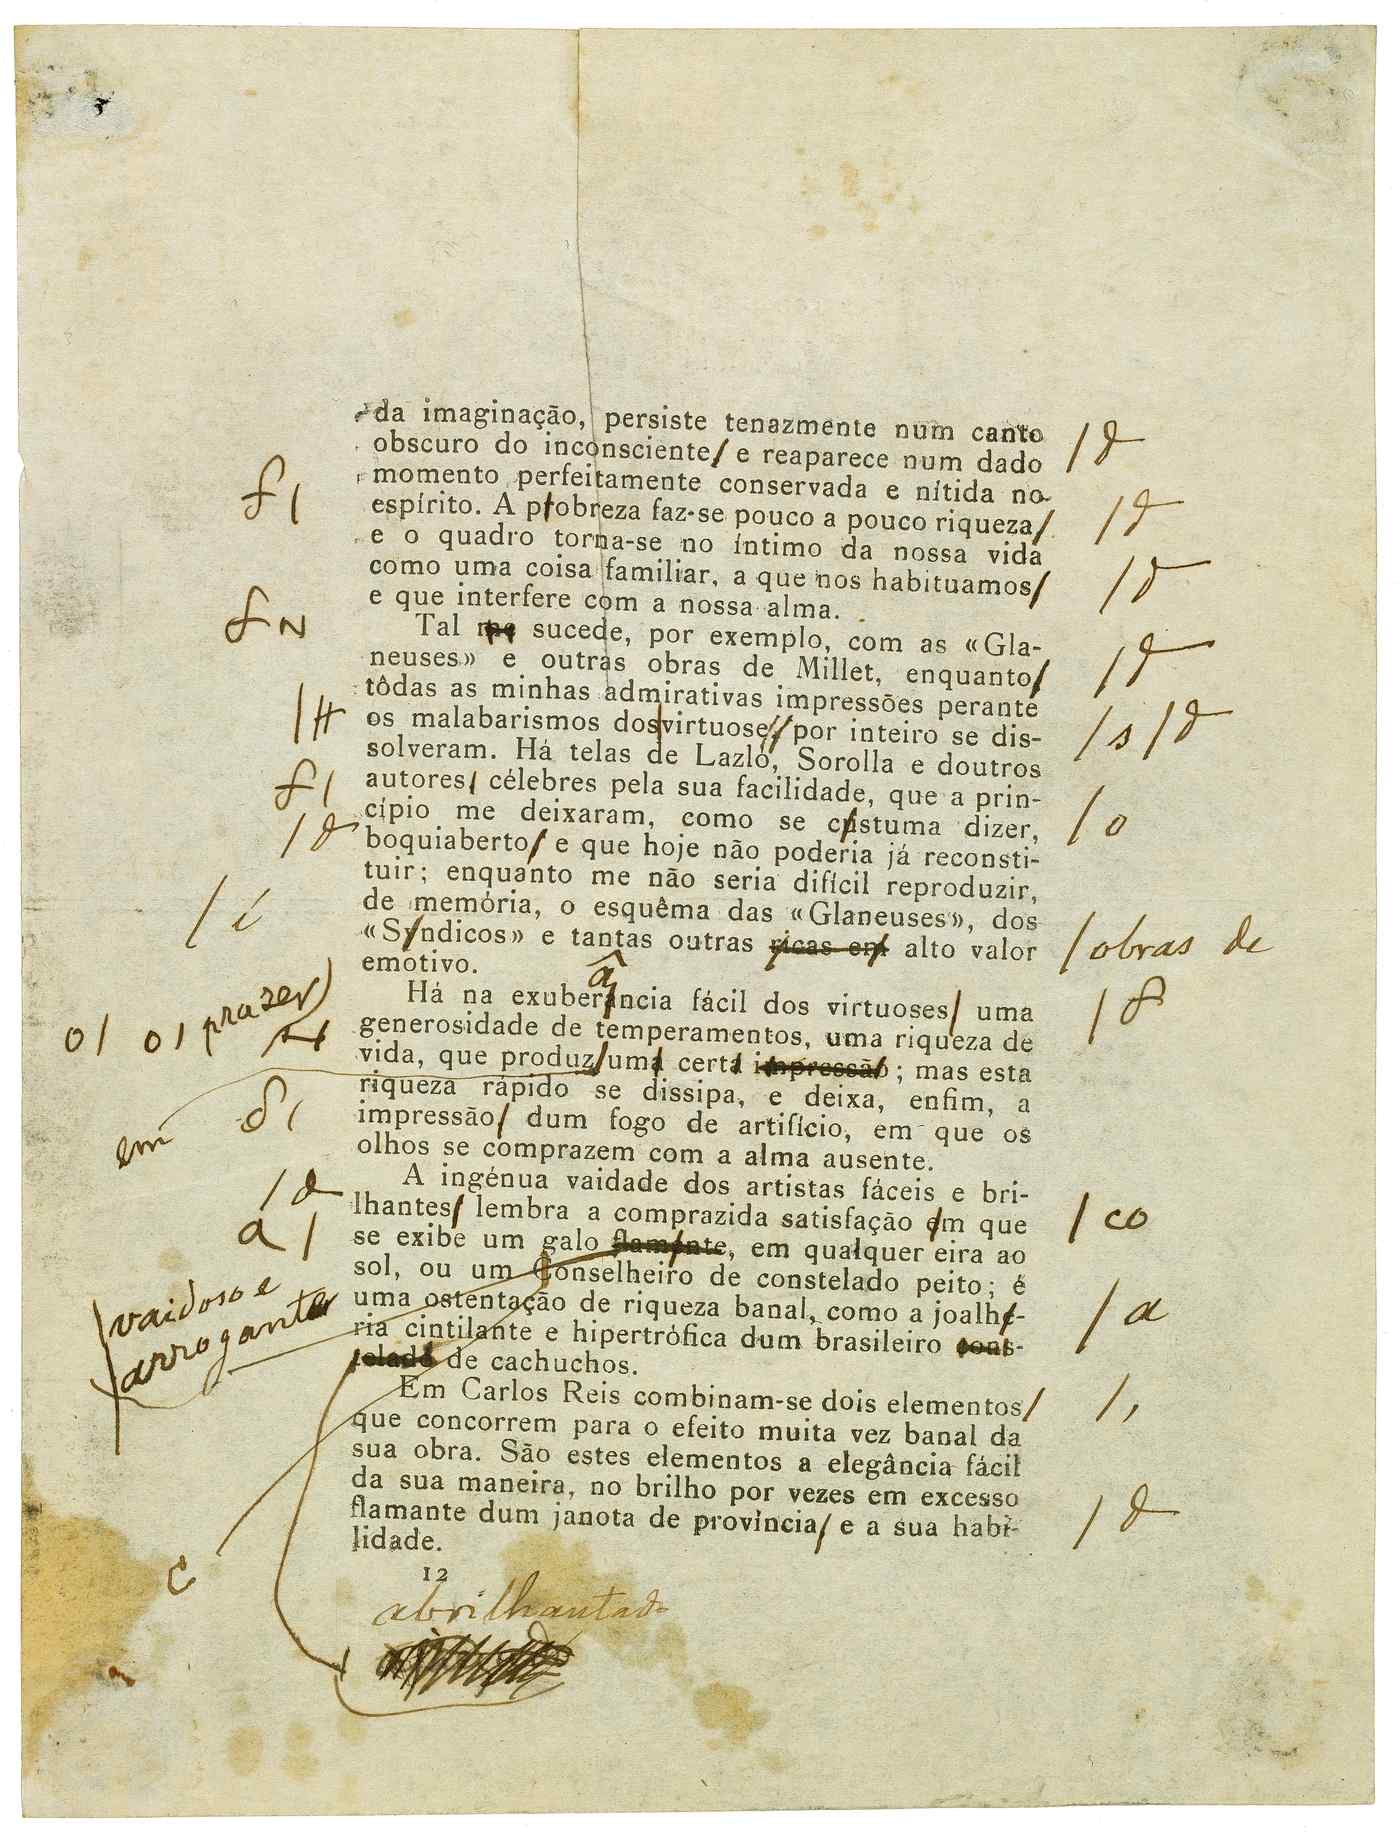 da imaginação, persiste tenazmente num canto
obscuro do inconsciente/ e reaparece num dado
momento perfeitamente conservada e nítida no
espírito. A probreza faz-se pouco a pouco riqueza/
e o quadro torna-se no íntimo da nossa vida
como uma coisa familiar, a que nos habituamos/
e que interfere com a nossa alma.
Tal me sucede, por exemplo, com as «Gla-
neuses» e outras obras de Millet, enquanto/
tôdas as minhas admirativas impressões perante
os malabarismos dos virtuose, por inteiro se dis-
/s/
solveram. Há telas de Lazló, Sorolla e doutros
autores/ célebres pela sua facilidade, que a prin-
cípio me deixaram, como se custuma dizer,
/o
boquiaberto/ e que hoje não poderia já reconsti-
tuir; enquanto me não seria difícil reproduzir,
de memória, o esquêma das «Glaneuses», dos
/i
«Syndicos» e tantas outras ricas em alto valor
/obras de
emotivo.
â
Há na exuberancia fácil dos virtuoses/ uma
o/ o/ prazer
generosidade de temperamentos, uma riqueza de
vida, que produz/uma certa impressão; mas esta
riqueza rápido se dissipa, e deixa, enfim, a
em
impressão/ dum fogo de artifício, em que os
olhos se comprazem com a alma ausente.
A ingénua vaidade dos artistas fáceis e bri-
lhantes/ lembra a comprazida satisfação em que
/co
a/
se exibe um galo flamente, em qualquer eira ao
sol, ou um Conselheiro de constelado peito; é
vaidoso e
arrogante
uma ostentação de riqueza banal, como a joalhe-
/a
ria cintilante e hipertrófica dum brasileiro cons-
telado de cachuchos.
Em Carlos Reis combinam-se dois elementos/
/,
que concorrem para o efeito muita vez banal da
sua obra. São estes elementos a elegância fácil
da sua maneira, no brilho por vezes em excesso
flamante dum janota de província/ e a sua habi-
lidade.
c
12
abrilhantado